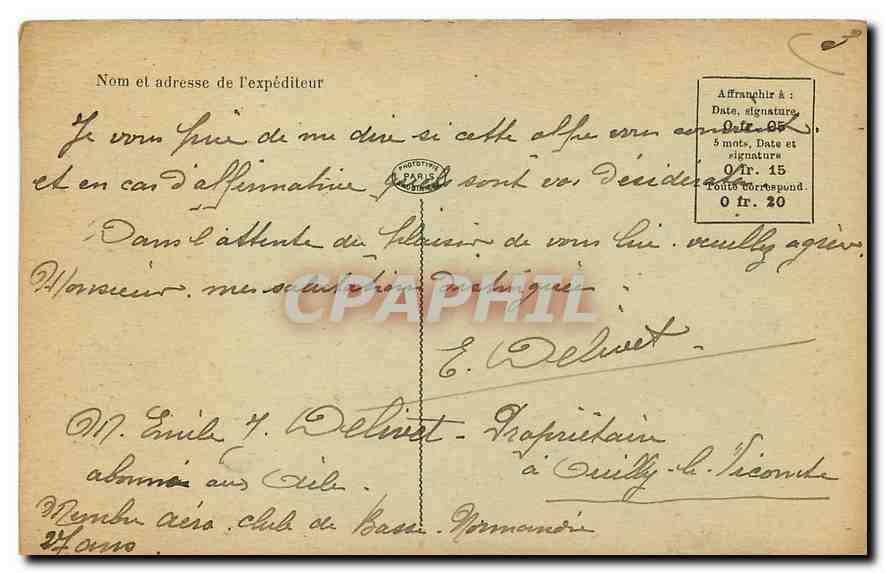 Nom et adresse de l'expéditeur
Affranchir à :
Date, signature
0 fr. 05
5 mots, Date et
signature
0 fr. 15
Toute correspond.
0 fr. 20
PHOTOTYPIE
PARIS
Je vous prie de me dire si cette offre vous convient.
et en cas d'affirmative quels sont vos désidérata
Dans l'attente du plaisir de vous lire. veuillez agréer.
Monsieur. mes salutations distinguées
CPAPHIL
E. Delivet
M. Emile J. Delivet - Propriétaire
à Ouilly-le-Vicomte
abonné aux Ailes.
Membre aéro-club de Basse-Normandie
27 ans.